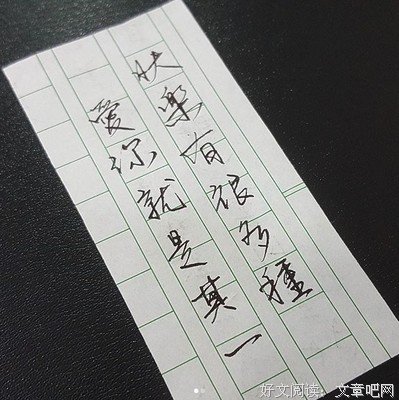 快樂有很多種
愛你就是其一
好文阅读：文章吧网